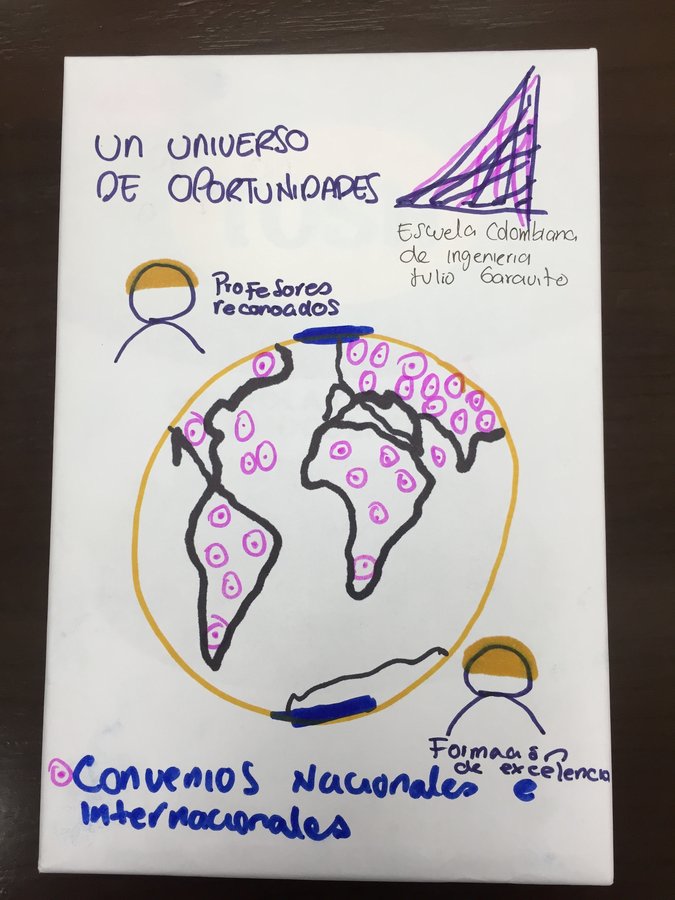 UN UNIVERSO
DE OPORTUNIDADES
Escuela Colombiana
de Ingenieria
Julio Garavito
Profesores
reconoados
Formación
de excelencia
Convenios Nacionales e
Internacionales